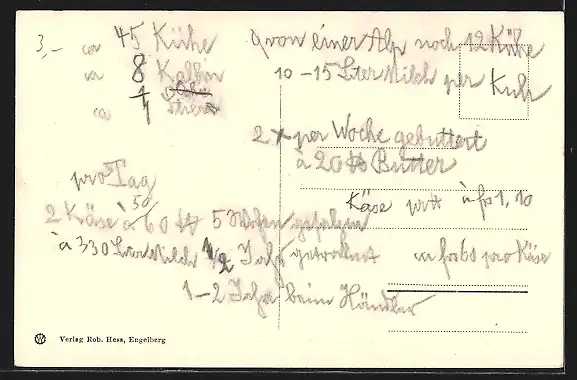 3,- ca 45 Kühe
ca 8 Kälber
1
ca 4 Stiere
9 von einer Alp noch 12 Kühe
10-15 Liter Milch per Kuh
2 x per Woche gebuttert
à 20 ℔ Butter
Käse pro ℔ à frs 1,10
pro Tag
50/
2 Käse à 60 ℔ 5 Wochen gesalzen
à 330 Liter Milch 1/2 Jahr getrocknet
ca frs 60 pro Käse
1-2 Jahr beim Händler
Verlag Rob. Hess, Engelberg